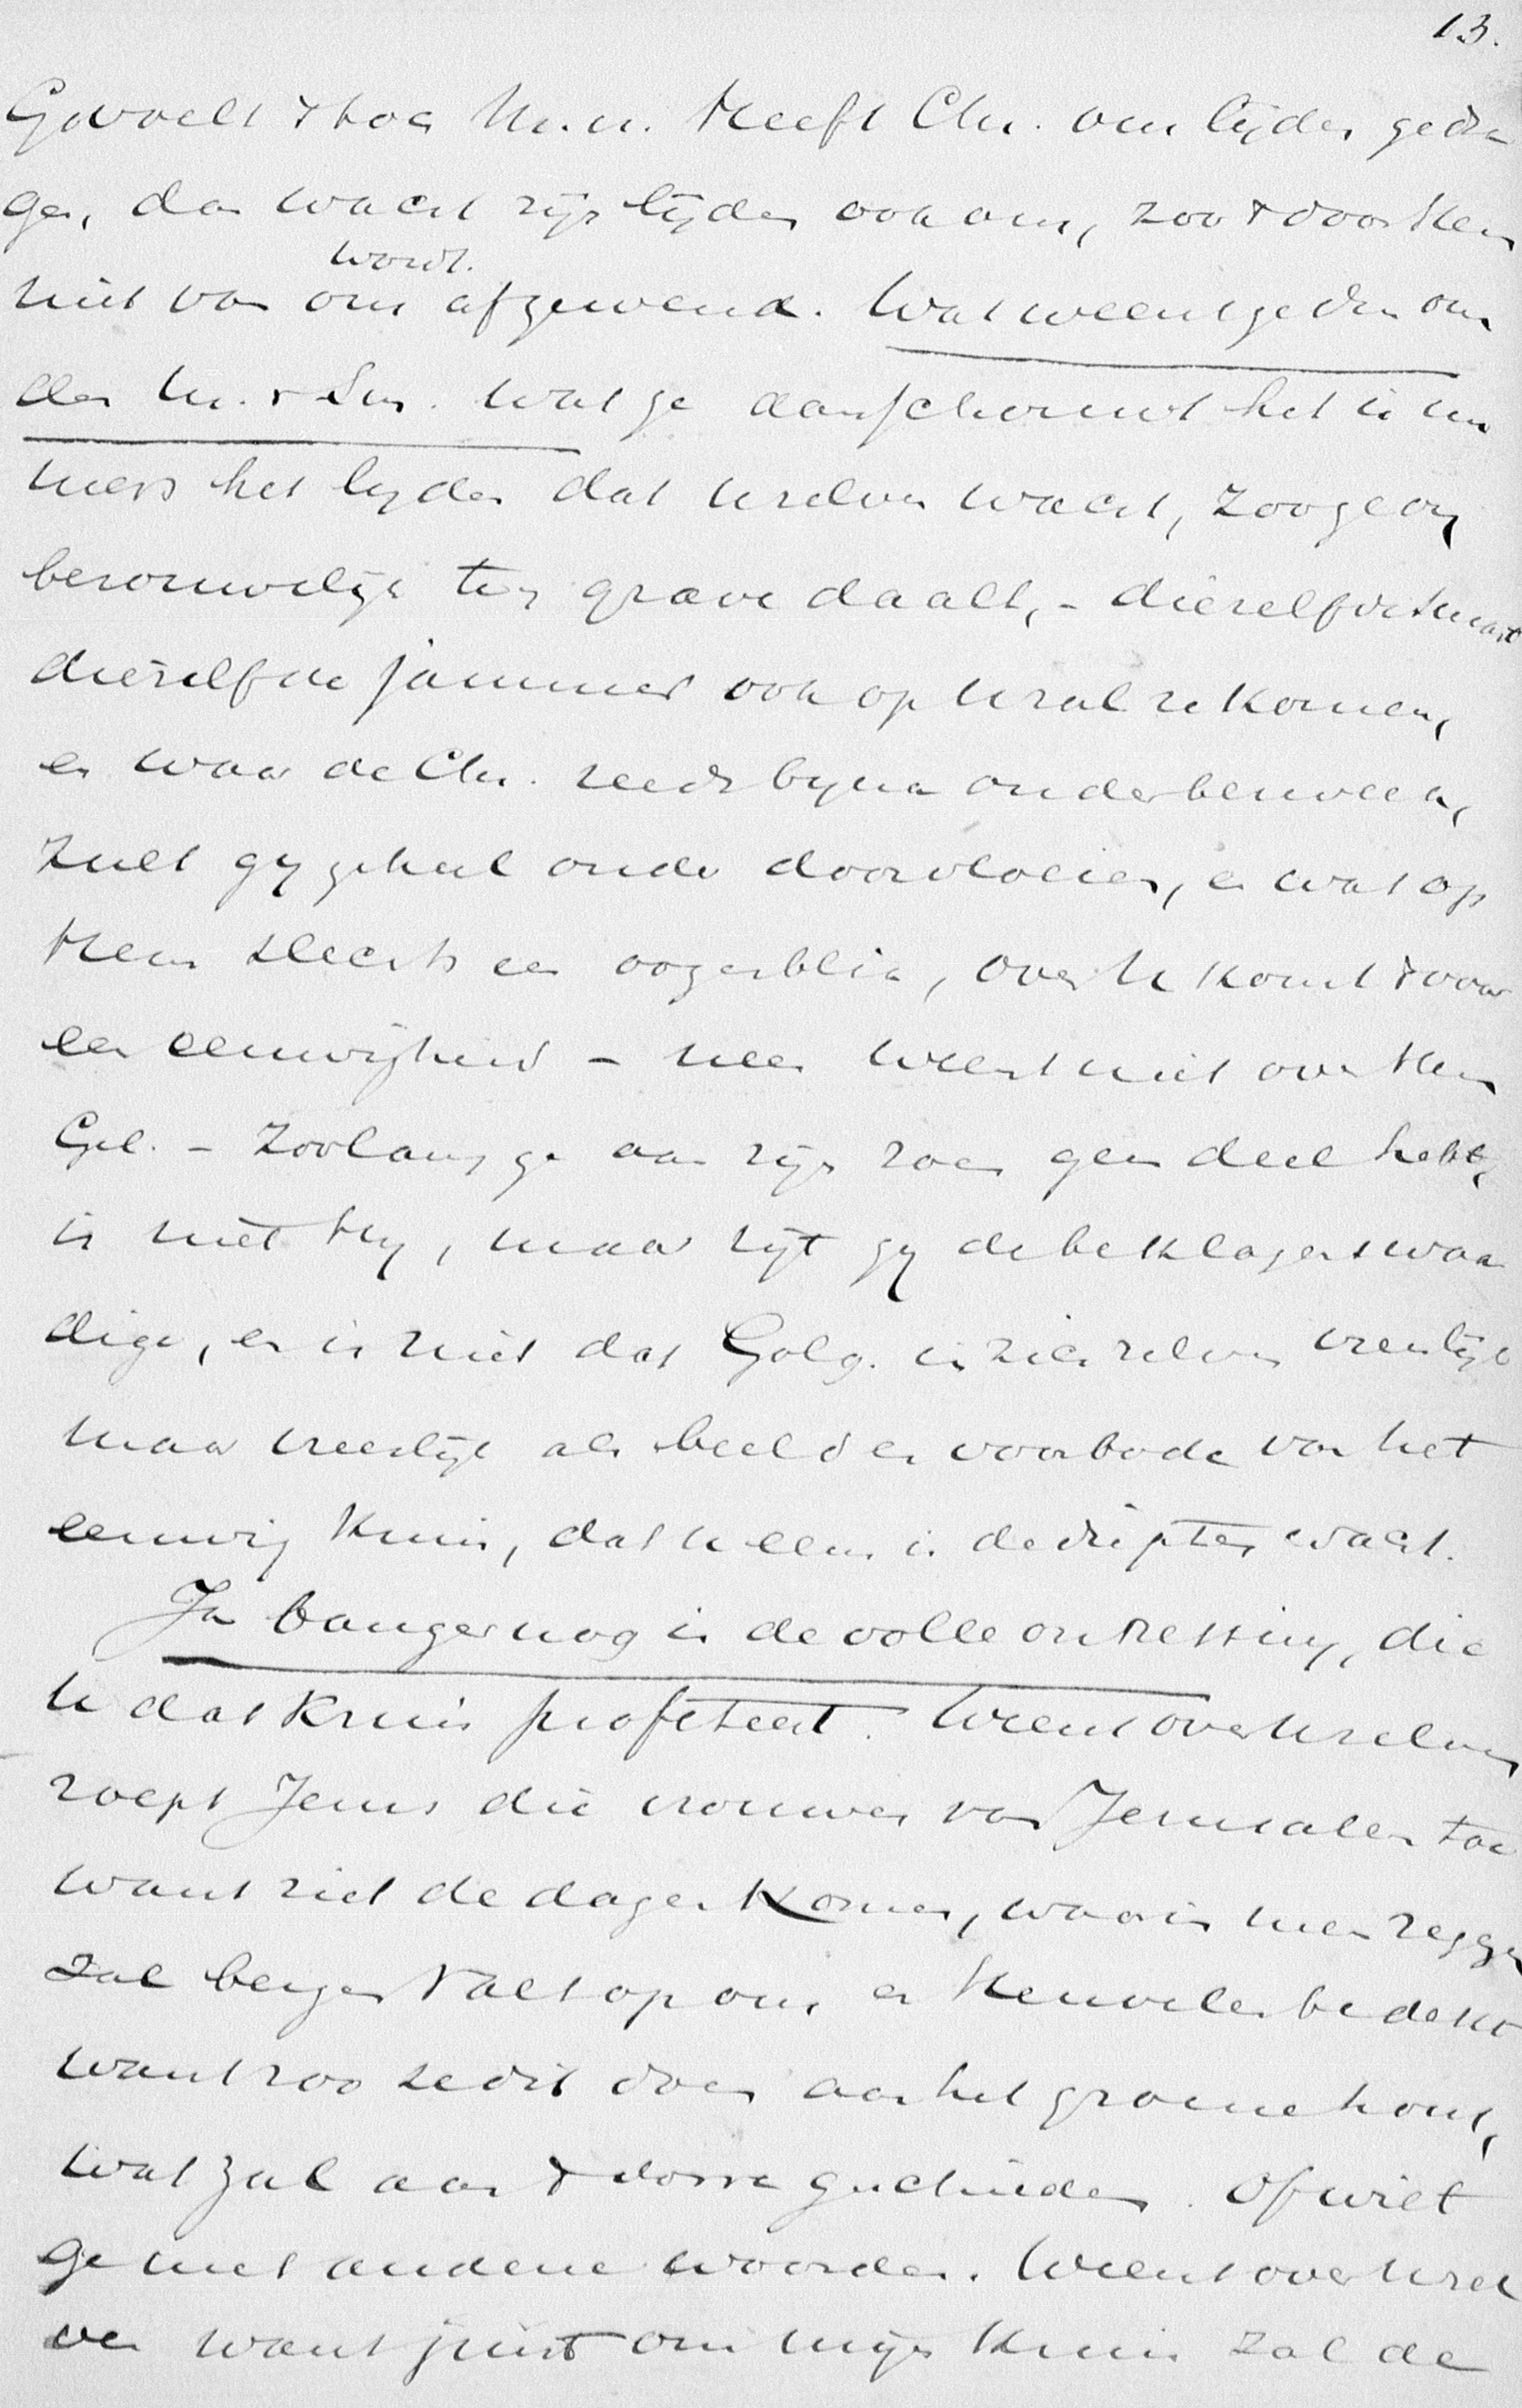 13.
Gevoelt ’t hoe M.V. Heeft Chr. ons lijden gedra
gen, dan wacht zijn lijden ook ons, zoo ’t door Hem
wordt.
niet van ons afgewend. Wat weent ge dan om
den M. v. Sm. Wat ge aanschouwt het is im
mers het lyden dat Uzelven wacht, zoo ge on
berouwelijk ten grave daalt, - diezelfde smart
diezelfde jammer ook op U zal ze komen,
en waar de Chr. reeds byna onder bezweek,
zult gy geheel onder doorvloeien, en wat op
Hem slechts een oogenblik, over U komt ’t voor
een eeuwigheid - neen weent niet over Hem
Gel. - Zoolang ge aan zijn zoen geen deel hebt,
is niet Hy, maar zijt gy de beklagenswaar
dige, en is niet dat Golg. in zich zelven vreeslijk
maar vreeslijk als beeld en voorbode van het
eeuwig Kruis, dat U eens in de diepten wacht.
Ja banger nog is de volle ontzetting, die
U dat Kruis profeteert. Weent over Uzelven
roept Jezus die vrouwen van Jerusalem toe
want ziet de dagen komen, waarin men zeggen
zal bergen valt op ons en heuvelen bedekt
want zoo ze dit doen aan het groene hout,
wat zal aan ’t dorre geschieden. Of wilt
ge met andere woorden. Weent over Uzel
ven want juist om mijn Kruis zal de